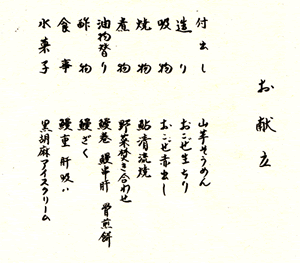 お献立
付出し 山芋そうめん
造り おこぜ生ちり
吸物 おこぜ赤出し
焼物 鮎清流焼
煮物 野菜焚き合わせ
油物替り 鰻巻 鰻串肝 骨煎餅
酢物 鰻ざく
食事 鰻重 肝吸ハ
水菓子 黒胡麻アイスクリーム